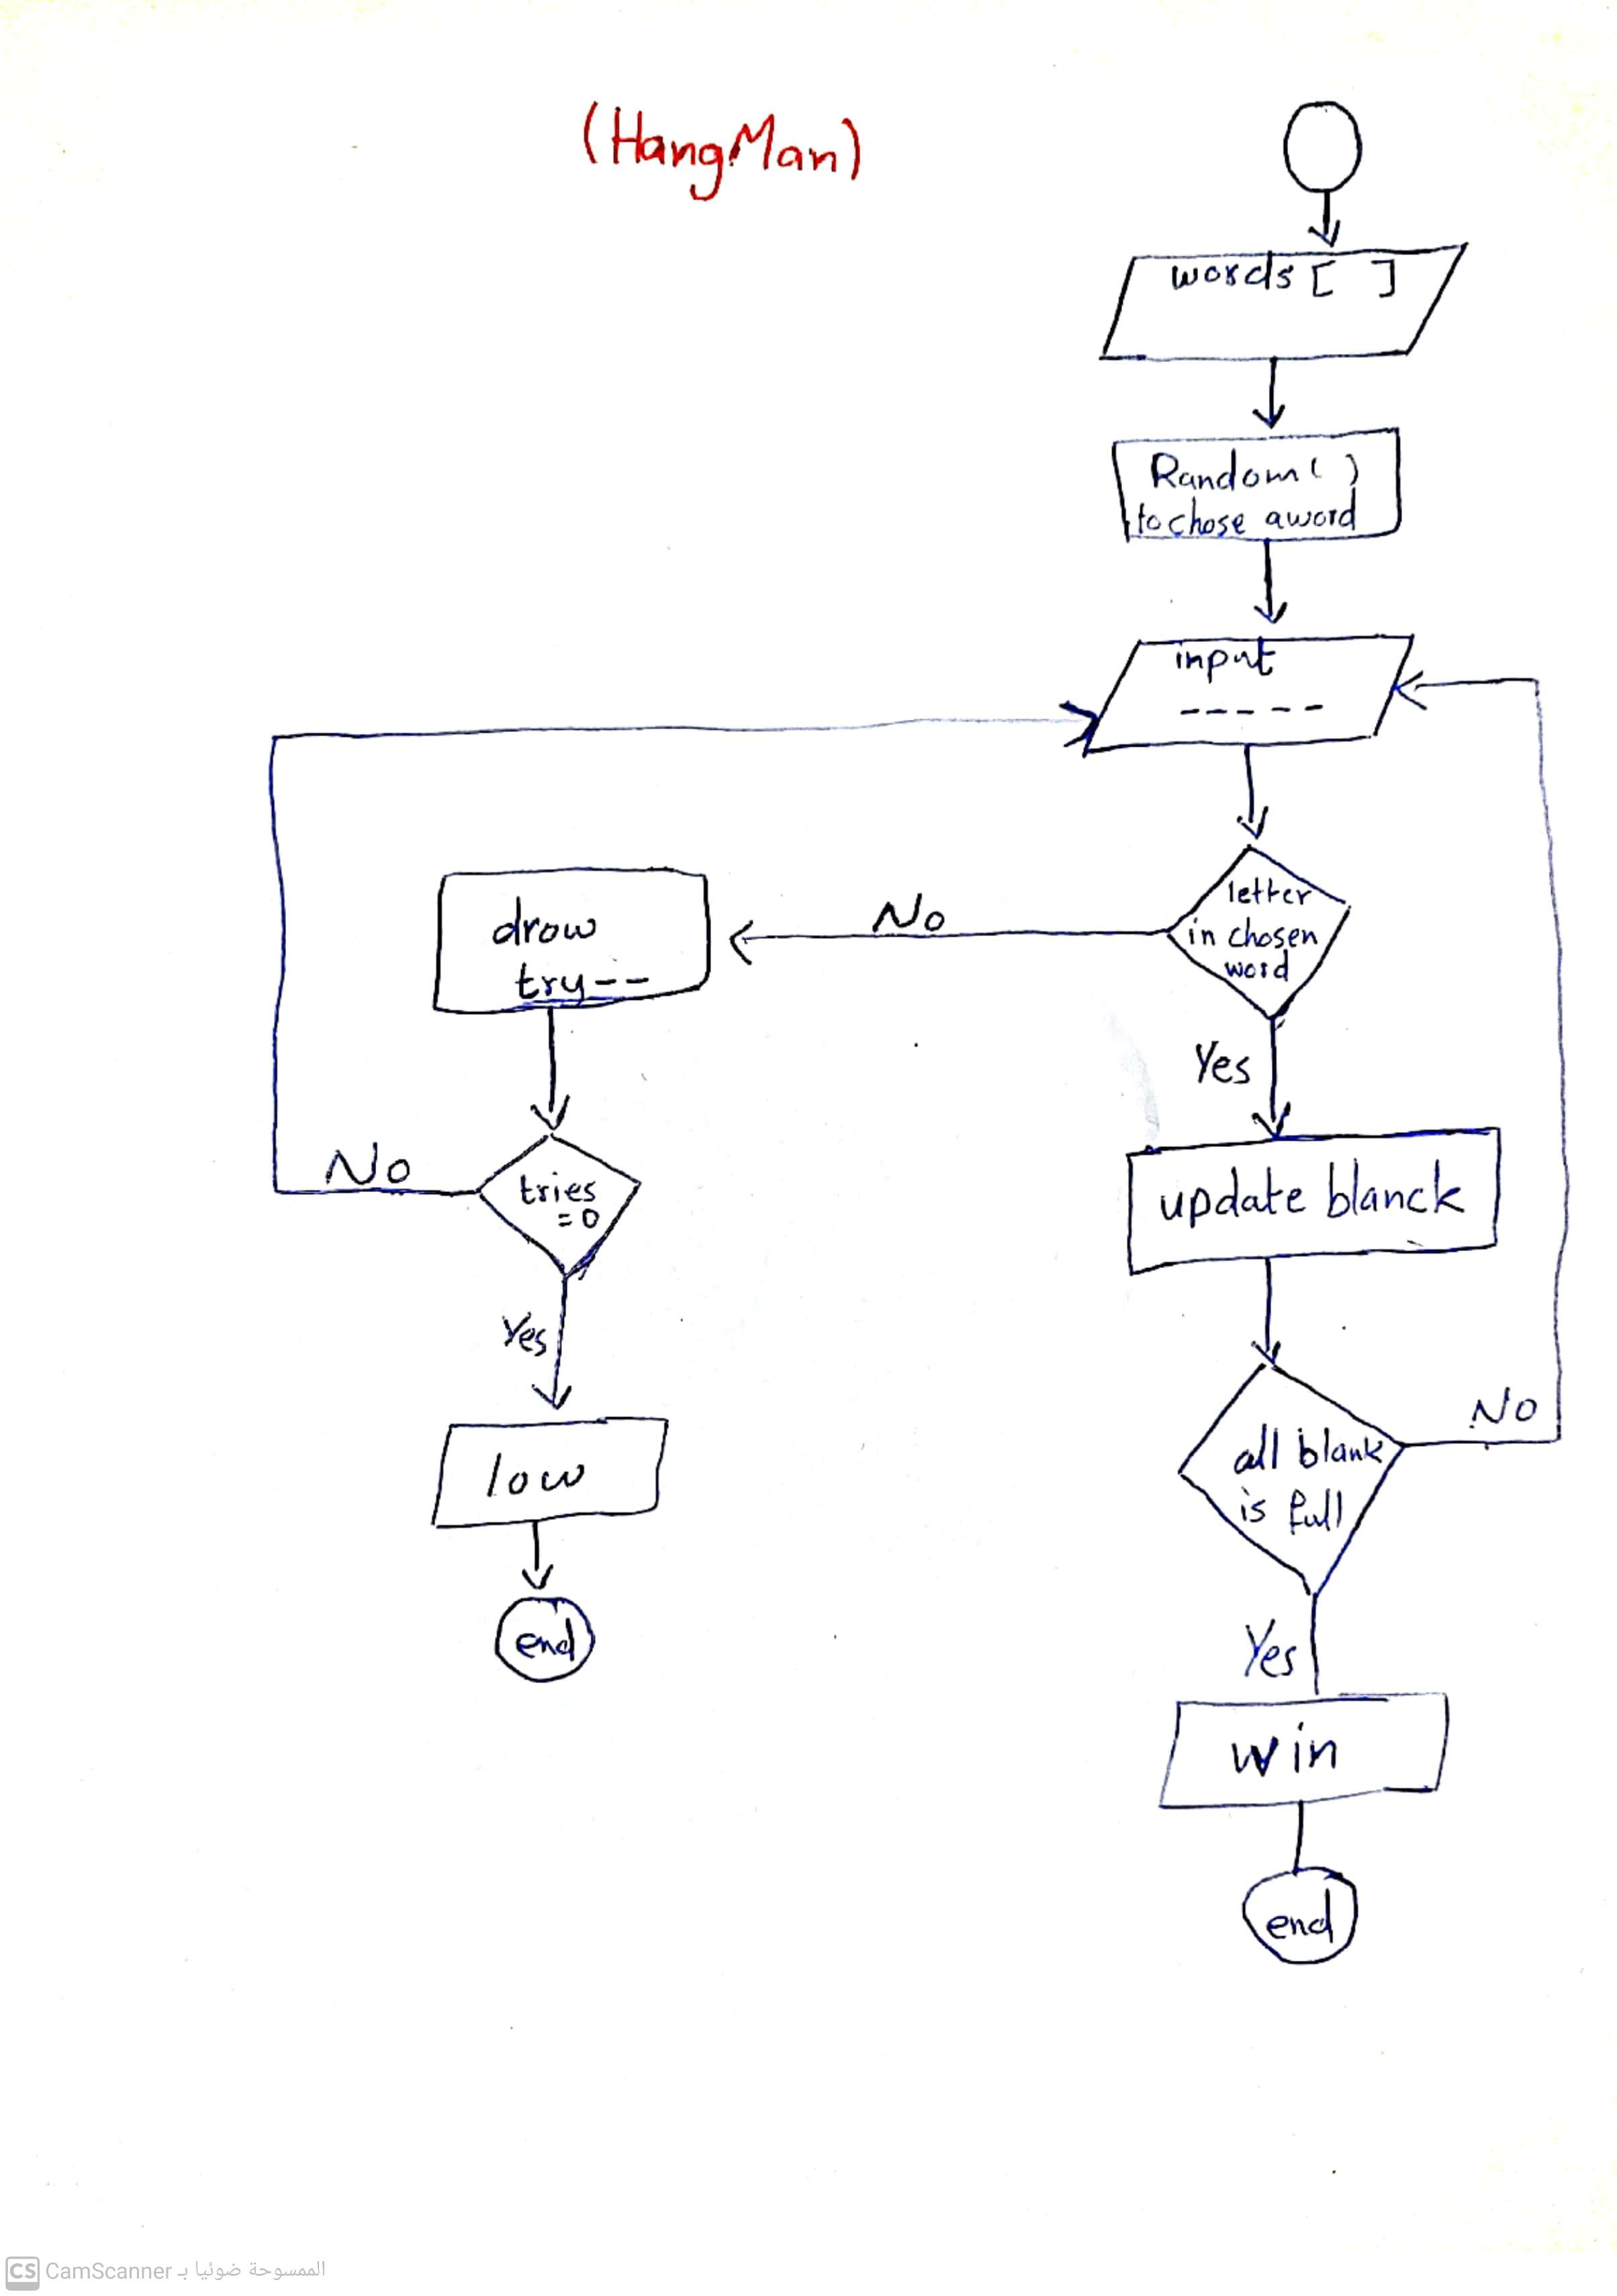 (HangMan)
words [ ]
Random( )
to chose a word
input
-----
letter
in chosen
word
No
drow
try--
Yes
update blanck
tries
=0
No
Yes
all blank
is full
No
low
end
Yes
win
end
CS CamScanner الممسوحة ضوئيا بـ